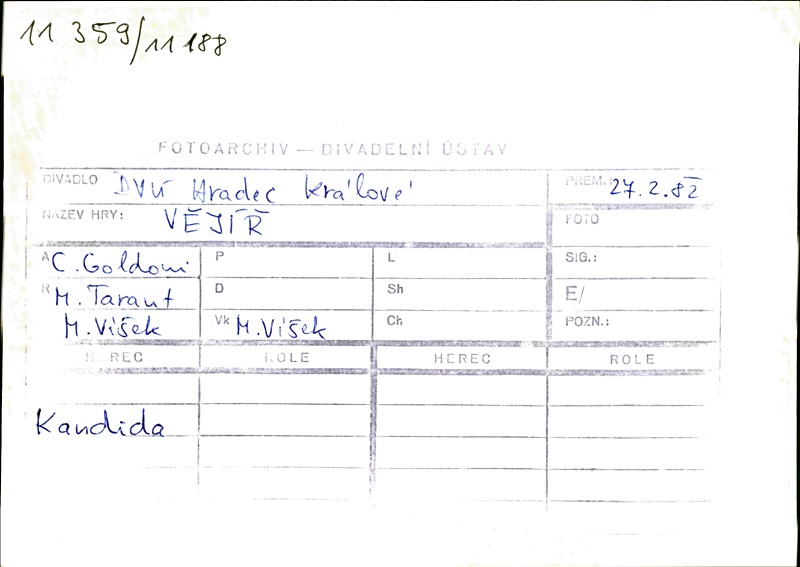 11 359/11 188
FOTOARCHIV — DIVADELNÍ ÚSTAV
DIVADLO DVÚ Hradec Králové PREM.: 27.2.82
NÁZEV HRY: VĚJÍŘ FOTO
A C. Goldoni P L SIG.:
R M. Tarant D Sh E/
M. Víšek Vk M. Víšek Ch POZN.:
HEREC ROLE HEREC ROLE
Kandida